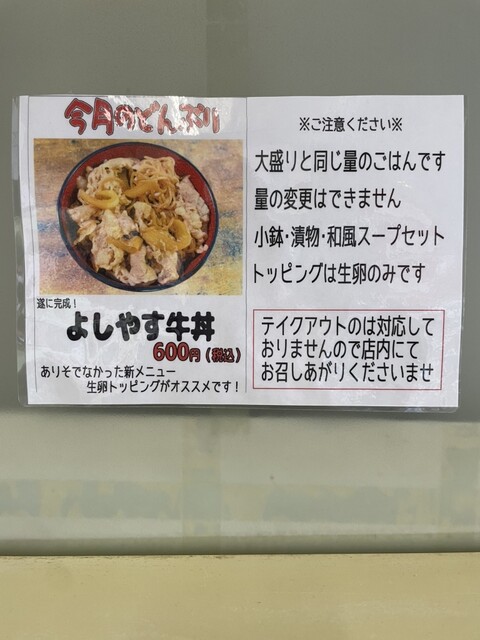 今月のどんぶり
遂に完成！
よしやす牛丼
600円（税込）
ありそでなかった新メニュー
生卵トッピングがオススメです！
※ご注意ください※
大盛りと同じ量のごはんです
量の変更はできません
小鉢・漬物・和風スープセット
トッピングは生卵のみです
テイクアウトのは対応して
おりませんので店内にて
お召しあがりくださいませ